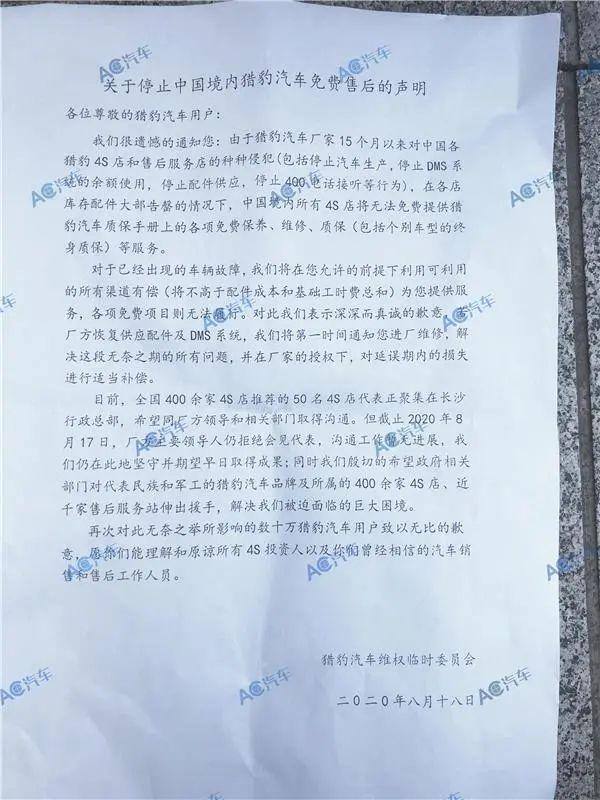 关于停止中国境内猎豹汽车免费售后的声明
各位尊敬的猎豹汽车用户：
我们很遗憾的通知您：由于猎豹汽车厂家15个月以来对中国各
猎豹4S店和售后服务店的种种侵犯(包括停止汽车生产，停止DMS系
统的余额使用，停止配件供应，停止400电话接听等行为），在各店
库存配件大部告罄的情况下，中国境内所有4S店将无法免费提供猎
豹汽车质保手册上的各项免费保养、维修、质保（包括个别车型的终
身质保）等服务。
对于已经出现的车辆故障，我们将在您允许的前提下利用可利用
的所有渠道有偿（将不高于配件成本和基础工时费总和）为您提供服
务，各项免费项目则无法履行。对此我们表示深深而真诚的歉意。若
厂方恢复供应配件及DMS系统，我们将第一时间通知您进厂维修，解
决这段无奈之期的所有问题，并在厂家的授权下，对延误期内的损失
进行适当补偿。
目前，全国400余家4S店推荐的50名4S店代表正聚集在长沙
行政总部，希望同厂方领导和相关部门取得沟通。但截止2020年8
月17日，厂方主要领导人仍拒绝会见代表，沟通工作暂无进展，我
们仍在此地坚守并期望早日取得成果;同时我们殷切的希望政府相关
部门对代表民族和军工的猎豹汽车品牌及所属的400余家4S店、近
千家售后服务站伸出援手，解决我们被迫面临的巨大困境。
再次对此无奈之举所影响的数十万猎豹汽车用户致以无比的歉
意，愿你们能理解和原谅所有4S投资人以及你们曾经相信的汽车销
售和售后工作人员。
猎豹汽车维权临时委员会
二〇二〇年八月十八日
AC汽车